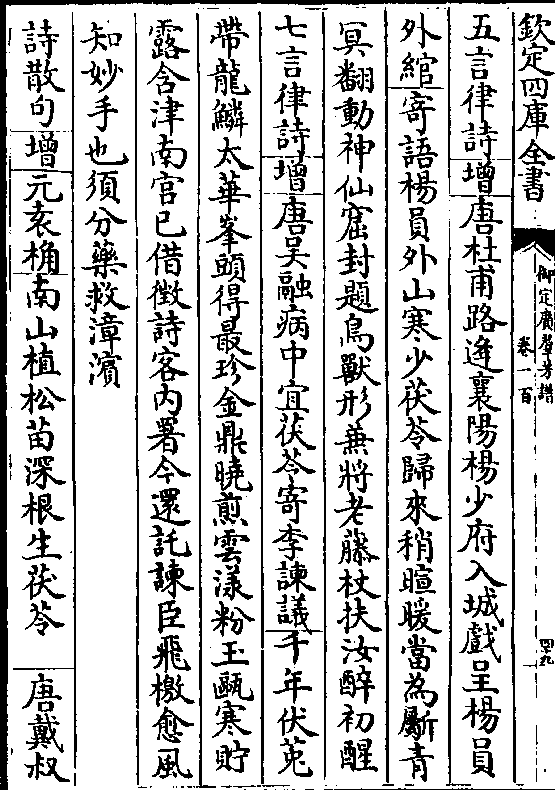 欽定四庫全書
御定廣羣芳譜
卷一百
四九
五言律詩增唐杜甫路逢襄陽楊少府入城戲呈楊員
外綰寄語楊員外山寒少茯苓歸來稍暄暖當為斸青
冥翻動神仙窟封題鳥獸形蒹將老藤杖扶汝醉初醒
七言律詩增唐吳融病中宜茯苓寄李諫議千年伏菟
帶龍鱗太華峯頭得最珍金鼎曉煎雲漾粉玉甌寒貯
露含津南宫已借徵詩客内署今還託諫臣飛檄愈風
知妙手也須分藥救漳濵
詩散句增元袁桷南山植松苗深根生茯苓　唐戴叔